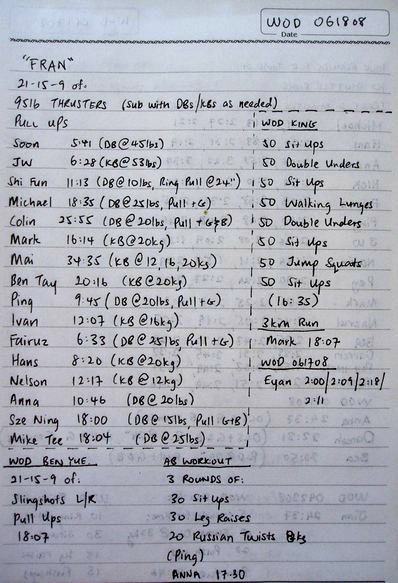 WOD 061808
Date
"FRAN"
21-15-9 of:
95lb THRUSTERS (sub with DBs/KBs as needed)
PULL UPS
Soon 5:41 (DB@45lbs)
JW 6:28 (KB@53lbs)
Shi Fun 11:13 (DB@10lbs, Ring Pull@24")
Michael 18:35 (DB@25lbs, Pull+G)
Colin 25:55 (DB@20lbs, Pull+G+B)
Mark 16:14 (KB@20kg)
Mai 34:35 (KB@12,16,20kg)
Ben Tay 20:16 (KB@20kg)
Ping 9:45 (DB@20lbs, Pull+G)
Ivan 12:07 (KB@16kg)
Fairuz 6:33 (DB@25lbs, Pull+G)
Hans 8:20 (KB@20kg)
Nelson 12:17 (KB@12kg)
Anna 10:46 (DB@20lbs)
Sze Ning 18:00 (DB@15lbs, Pull G+B)
Mike Tee 18:04 (DB@25lbs)
WOD KING
50 Sit Ups
50 Double Unders
50 Sit Ups
50 Walking Lunges
50 Double Unders
50 Sit Ups
50 Jump Squats
50 Sit Ups
(16:35)
3km Run
Mark 18:07
WOD 061708
Eyan 2:00/2:09/2:18/
2:11
WOD BEN YUE
21-15-9 of:
Slingshots L/R
Pull Ups
18:07
AB WORKOUT
3 ROUNDS OF:
30 Sit Ups
30 Leg Raises
20 Russian Twists
(Ping)
ANNA 17:30